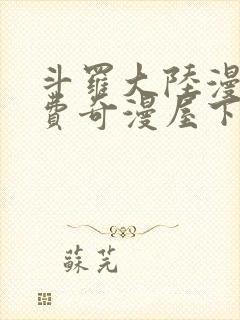 斗羅大陸漫
費奇漫屋下
蘇芫